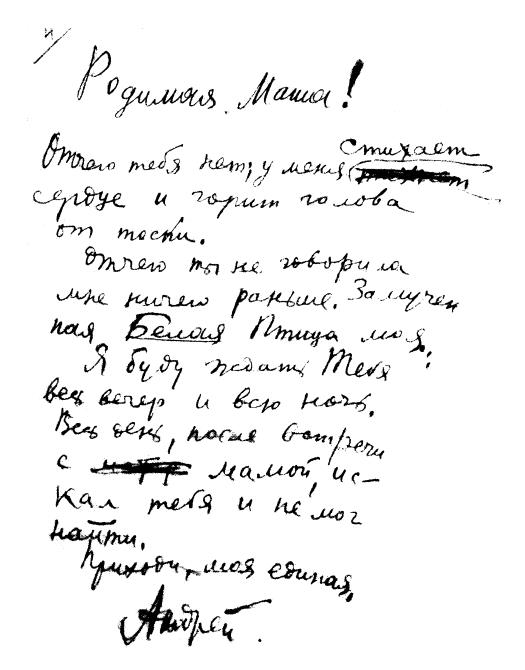 и/
Родимая Маша!
Отчего тебя нет; у меня стихает
сердце и горит голова
от тоски.
Отчего ты не говорила
мне ничего раньше. Замучен
ная Белая Птица моя.
Я буду ждать Тебя
весь вечер и всю ночь.
Весь день, после встречи
с мамой, ис-
кал тебя и не мог
найти.
Приходи, моя единая,
Андрей.